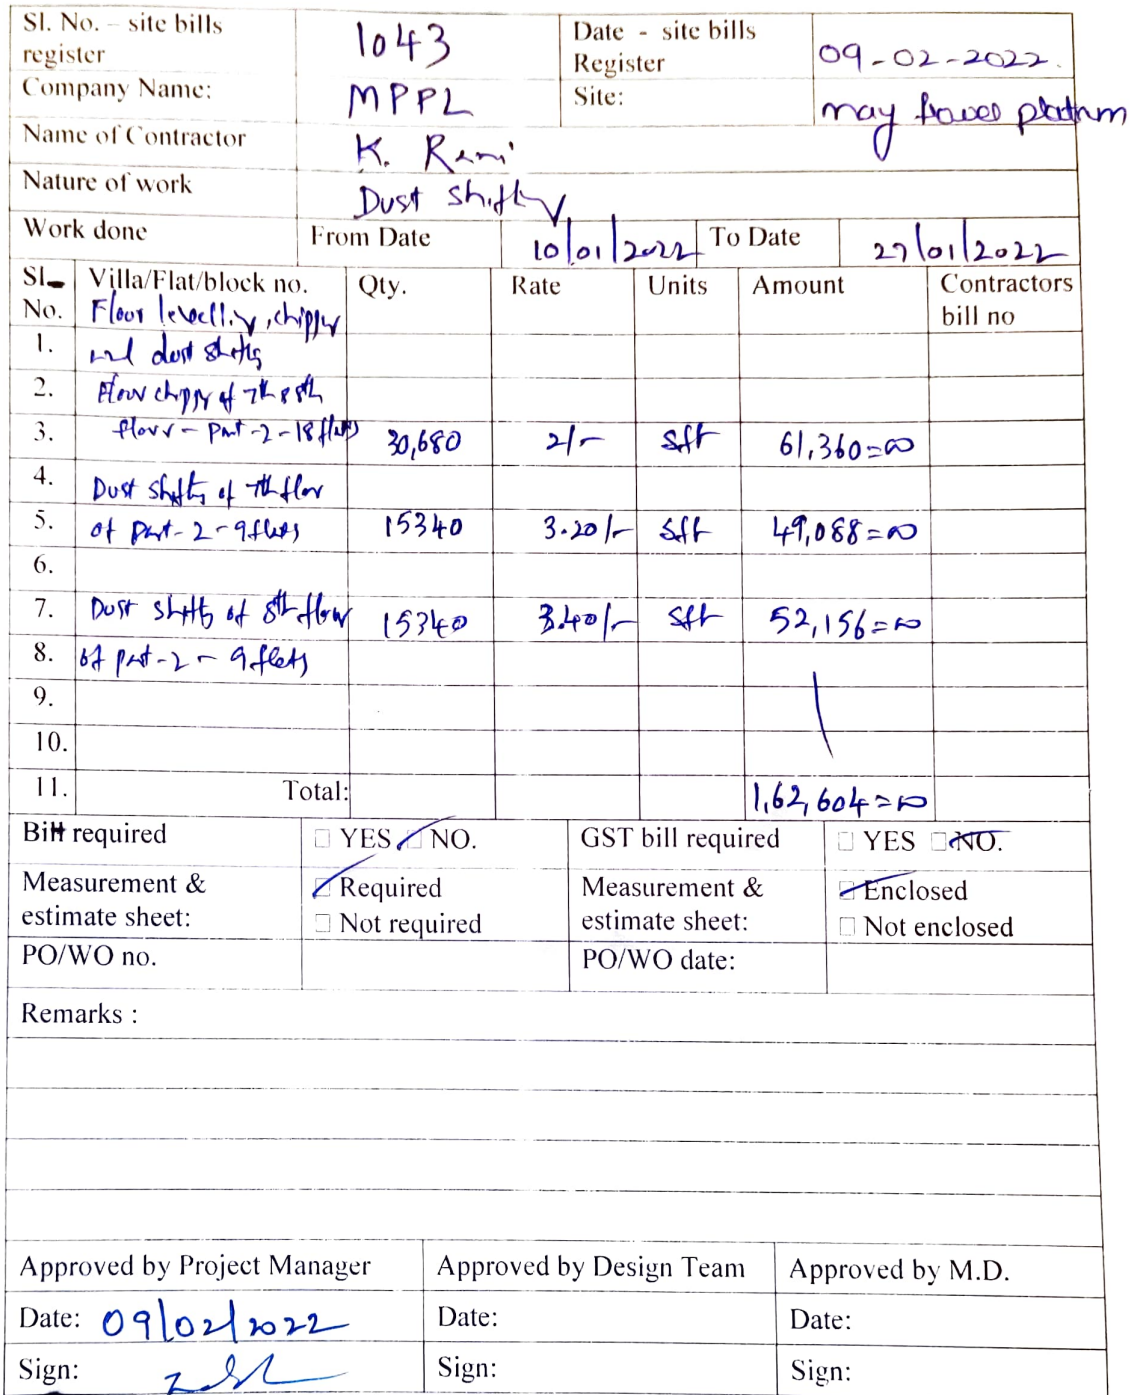 Sl. No. – site bills register 1043 Date - site bills Register 09-02-2022.
Company Name: MPPL Site: may
Name of Contractor K.
Nature of work Dust shifting
Work done From Date 10/01/2022 To Date 27/01/2022
Sl. No. Villa/Flat/block no. Qty. Rate Units Amount Contractors bill no
Floor levelling, chipping
1. and dust shifting
2. Floor chipping of 7th & 8th
3. floor - part-2-18 flats 30,680 2/- sft 61,360=00
4. Dust shifting of 7th floor
5. of part-2-9 flats 15340 3.20/- sft 49,088=00
6.
7. Dust shifting of 8th floor 15340 3.40/- sft 52,156=00
8. of part-2-9 flats
9.
10.
11. Total: 1,62,604=00
Bill required YES NO. GST bill required YES NO.
Measurement & estimate sheet: Required Measurement & estimate sheet: Enclosed
Not required Not enclosed
PO/WO no. PO/WO date:
Remarks :
Approved by Project Manager Approved by Design Team Approved by M.D.
Date: 09/02/2022 Date: Date:
Sign: Sign: Sign: